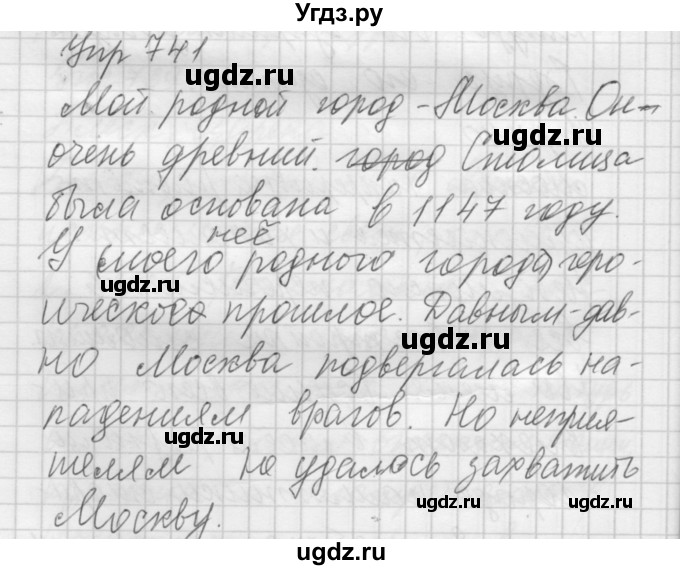 Угдз.ру
Упр 741
ugdz.ru
Мой родной город - Москва. Он -
ugdz.ru
очень древний. город Столица
была основана в 1147 году.
неё
У (моего родного города) геро-
ugdz.ru
ическое прошлое. Давным-дав-
ugdz.ru
но Москва подвергалась на-
падениям врагов. Но неприя-
ugdz.ru
телям не удалось захватить
ugdz.ru ugdz.ru
Москву.
ugdz.ru